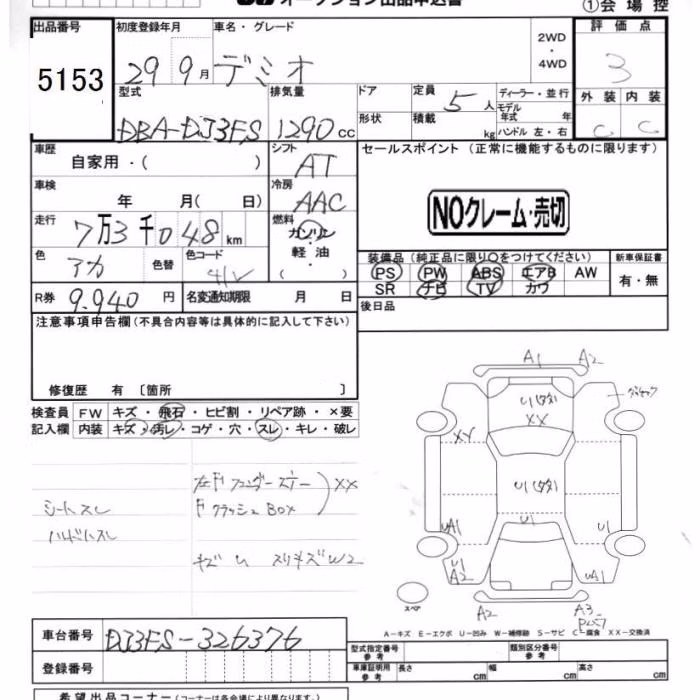 オークション出品申込書
①会場控
出品番号 初度登録年月 車名・グレード 2WD・4WD 評価点
5153 29 9月 デミオ 3
型式 排気量 ドア 定員 5人 ディーラー・並行 外装 内装
DBA-DJ3FS 1290cc 形状 積載 kg モデル年式 年 ハンドル 左・右 C C
車歴 自家用・( ) シフト AT セールスポイント(正常に機能するものに限ります)
車検 年 月( 日) 冷房 AAC NOクレーム・売切
走行 7万3千048km 燃料 ガソリン・軽油・( )
色 アカ 色替 色コード 41V 装備品(純正品に限り○をつけてください) 新車保証書
PS PW ABS エアB AW 有・無
R券 9.940円 名変通知期限 月 日 SR ナビ TV カワ
後日品
注意事項申告欄(不具合内容等は具体的に記入して下さい)
修復歴 有 [箇所 ]
検査員 FW キズ・飛石・ヒビ割・リペア跡・×要
記入欄 内装 キズ・汚レ・コゲ・穴・スレ・キレ・破レ
XX
シートスレ F クラッシュBOX
ハンドルスレ
キズ スリキズ W2
A1 A2
U1
XX
XY
U1
U1
UA1 U1
U1
A2 UA1
スペア A2 A3
A-キズ E-エクボ U-凹み W-補修跡 S-サビ C-腐食 XX-交換済
車台番号 DJ3FS-326376 型式指定番号 参考 類別区分番号 参考
登録番号 車庫証明用 参考 長さ cm 幅 cm 高さ cm
希望出品コーナー(コーナーは各会場により異なります)